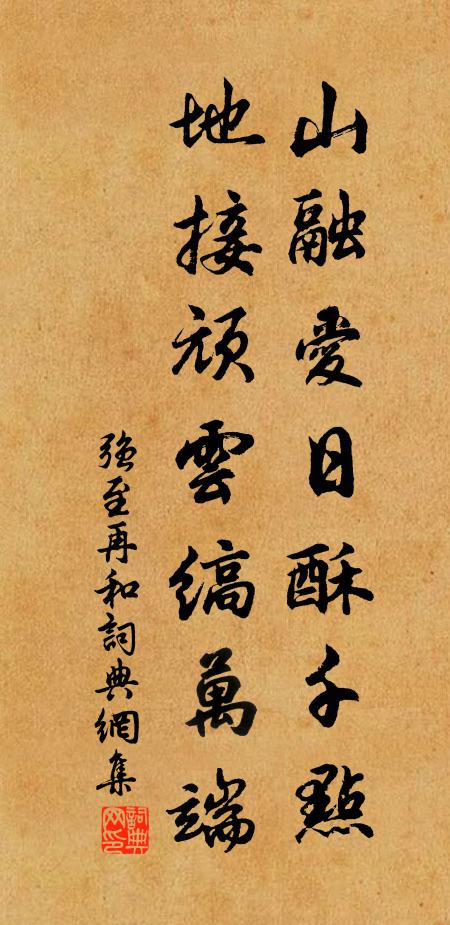 山融愛日酥千點
地接頑雲縞萬端
強至再和詞典網集
詞典
网印